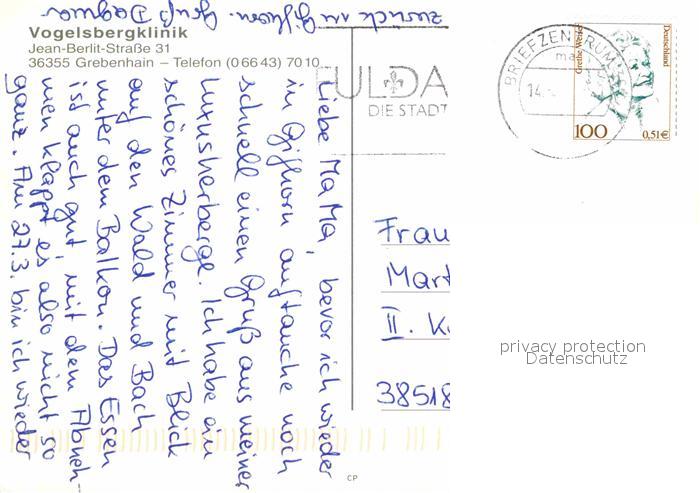 Vogelsbergklinik
Jean-Berlit-Straße 31
36355 Grebenhain – Telefon (0 66 43) 70 10
Liebe MaMa, bevor ich wieder
in Gifhorn auftauche noch
schnell einen Gruß aus meiner
Luxusherberge. Ich habe ein
schönes Zimmer mit Blick
auf den Wald und Bach
unter dem Balkon. Das Essen
ist auch gut mit dem Abneh-
men klappt es also nicht so
ganz. Am 27.3. bin ich wieder
zurück in Gifhorn. Gruß Dagmar
FULDA
DIE STADT
BRIEFZENTRUM
14.
Grethe Weiser
Deutschland
100
0,51€
Frau
Mart
II. K
38518
privacy protection
Datenschutz
CP